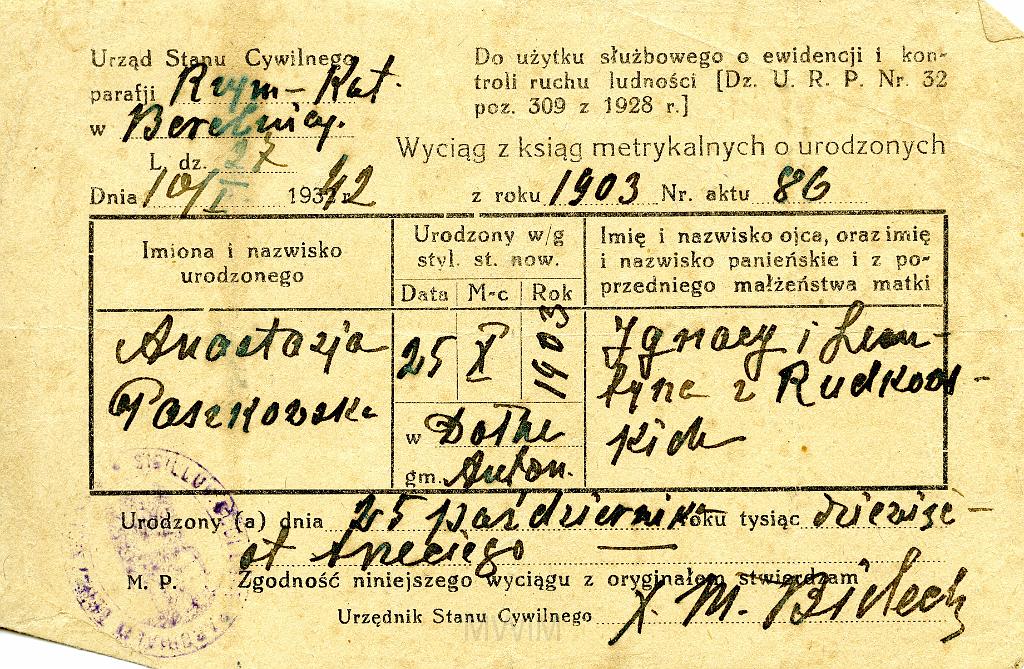 Urząd Stanu Cywilnego
parafji Rzym-Kat.
w Berelnicy.
L. dz. 27
Dnia 10/I 1942
Do użytku służbowego o ewidencji i kon-
troli ruchu ludności [Dz. U. R. P. Nr. 32
poz. 309 z 1928 r.]
Wyciąg z ksiąg metrykalnych o urodzonych
z roku 1903 Nr. aktu 86
Imiona i nazwisko
urodzonego
Urodzony w/g
styl. st. now.
Data M-c Rok
Imię i nazwisko ojca, oraz imię
i nazwisko panieńskie i z po-
przedniego małżeństwa matki
Anastazja
Paszkowska
25 X 1903
w Dołhe
gm. Anton.
Ignacy i Leon-
tyna z Rudkow-
kich
Urodzony (a) dnia 25 października roku tysiąc dziewięć-
et trzeciego
M. P.
Zgodność niniejszego wyciągu z oryginałem stwierdzam
Urzędnik Stanu Cywilnego X. M. Bilech
SIGILLUM
MWIM